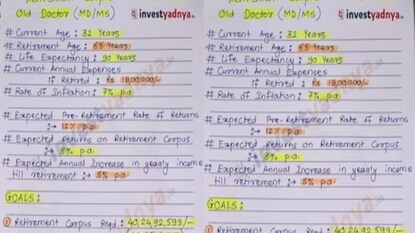 Old Doctor (MD/MS)
investyadnya.in
# Current Age : 32 Years
# Retirement Age : 65 Years
# Life Expectancy : 90 Years
# Current Annual Expenses
If Retired : Rs 18,00,000/-
# Rate of Inflation : 7% p.a
# Expected Pre-Retirement Rate of Returns
:→ 12% p.a
# Expected Returns on Retirement Corpus
:→ 8% p.a.
# Expected Annual Increase in yearly income
till retirement :→ 5% p.a
GOALS :
① Retirement Corpus Reqd : 40,24,92,599/-
Old Doctor (MD/MS)
investyadnya.in
# Current Age : 32 Years
# Retirement Age : 65 Years
# Life Expectancy : 90 Years
# Current Annual Expenses
If Retired : Rs 18,00,000/-
# Rate of Inflation : 7% p.a
# Expected Pre-Retirement Rate of Returns
:→ 12% p.a
# Expected Returns on Retirement Corpus
:→ 8% p.a.
# Expected Annual Increase in yearly income
till retirement :→ 5% p.a
GOALS :
① Retirement Corpus Reqd : 40,24,92,599/-